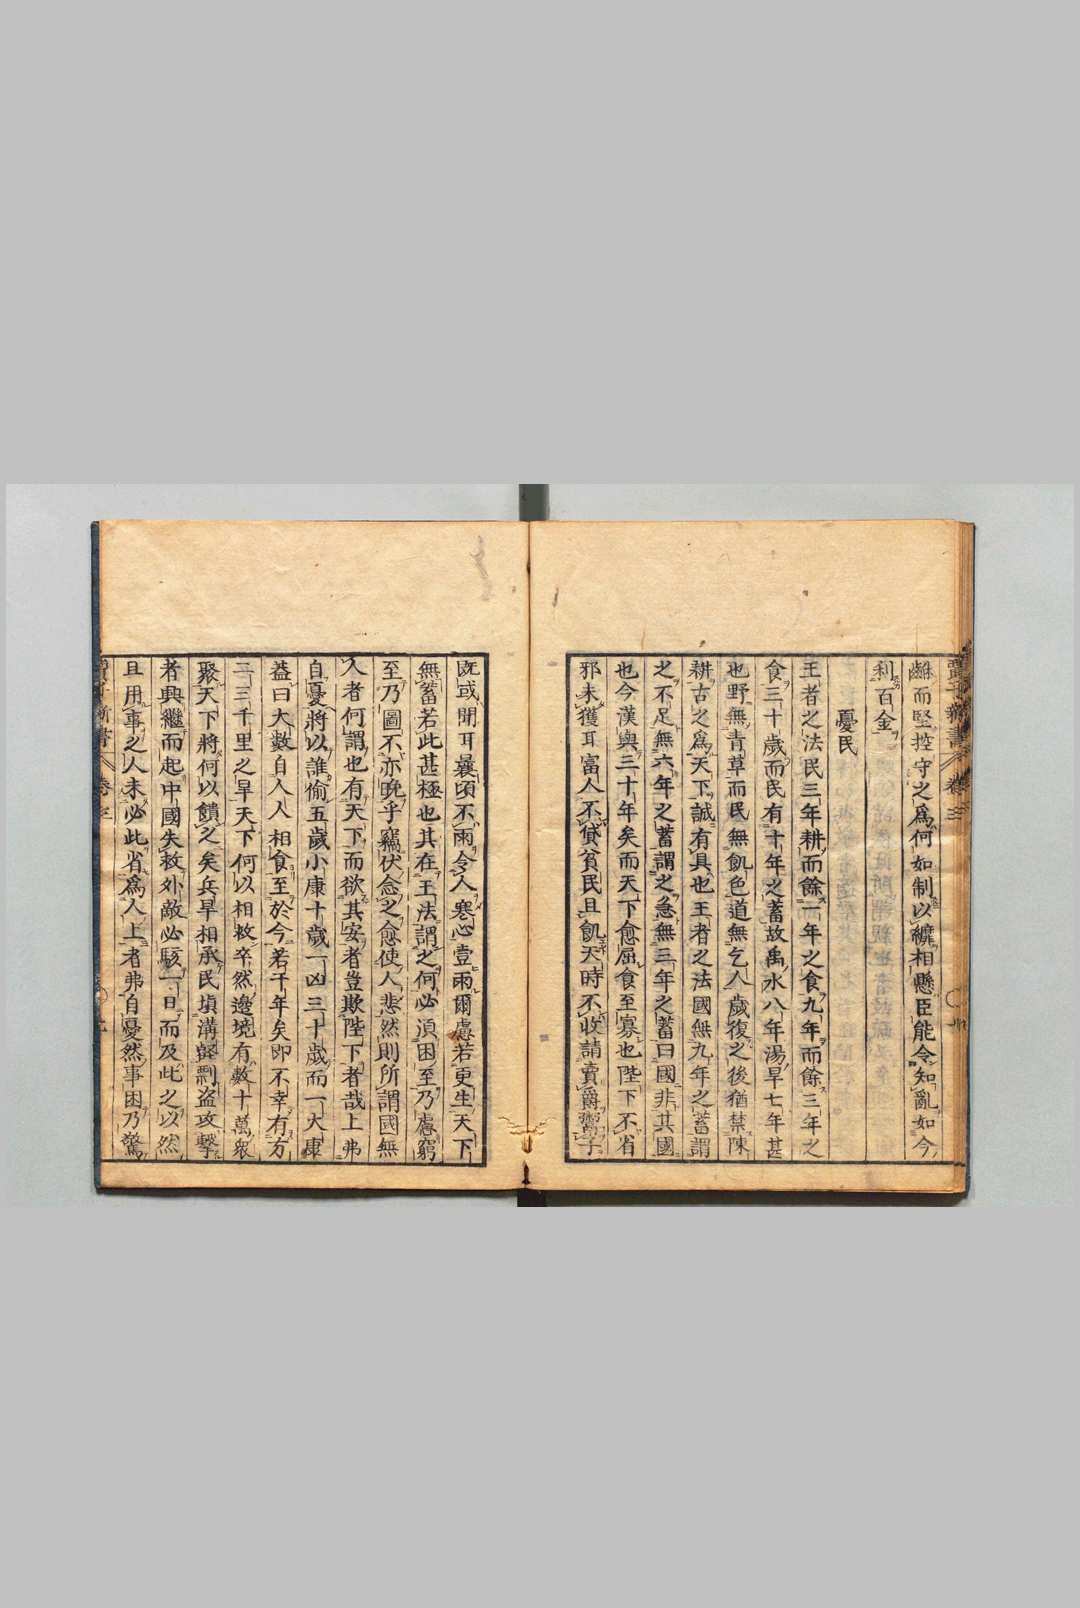 而堅控守之爲何如制以縑相懸臣能令知亂如今
利百金
憂民
王者之法民三年耕而餘一年之食九年而餘三年之
食三十歲而民有十年之蓄故禹水八年湯旱七年甚
也野無青草而民無飢色道無乞人歲復之後猶禁陳
耕古之爲天下誠有具也王者之法國無九年之蓄謂
之不足無六年之蓄謂之急無三年之蓄曰國非其國
也今漢興三十年矣而天下愈屈食至寡也陛下不省
邪未獲耳富人不貸貧民且飢天時不收請賣爵鬻子
既或聞耳曩頃不雨令人寒心壹雨爾慮若更生天下
無蓄若此甚極也其在王法謂之何必須困至乃慮窮
至乃圖不亦晚乎竊伏念之愈使人悲然則所謂國無
人者何謂也有天下而欲其安者豈欺陛下者哉上弗
自憂將以誰偷五歲小康十歲一凶三十歲而一大康
蓋曰大數自人人相食至於今若干年矣即不幸有方
二三千里之旱天下何以相救卒然邊境有數十萬衆
聚天下將何以饋之矣兵旱相承民塡溝壑剽盗攻擊
者興繼而起中國失救外敵必駭一日而及此之以然
且用事之人未必此省爲人上者弗自憂然事困乃驚
賈子新書
卷三